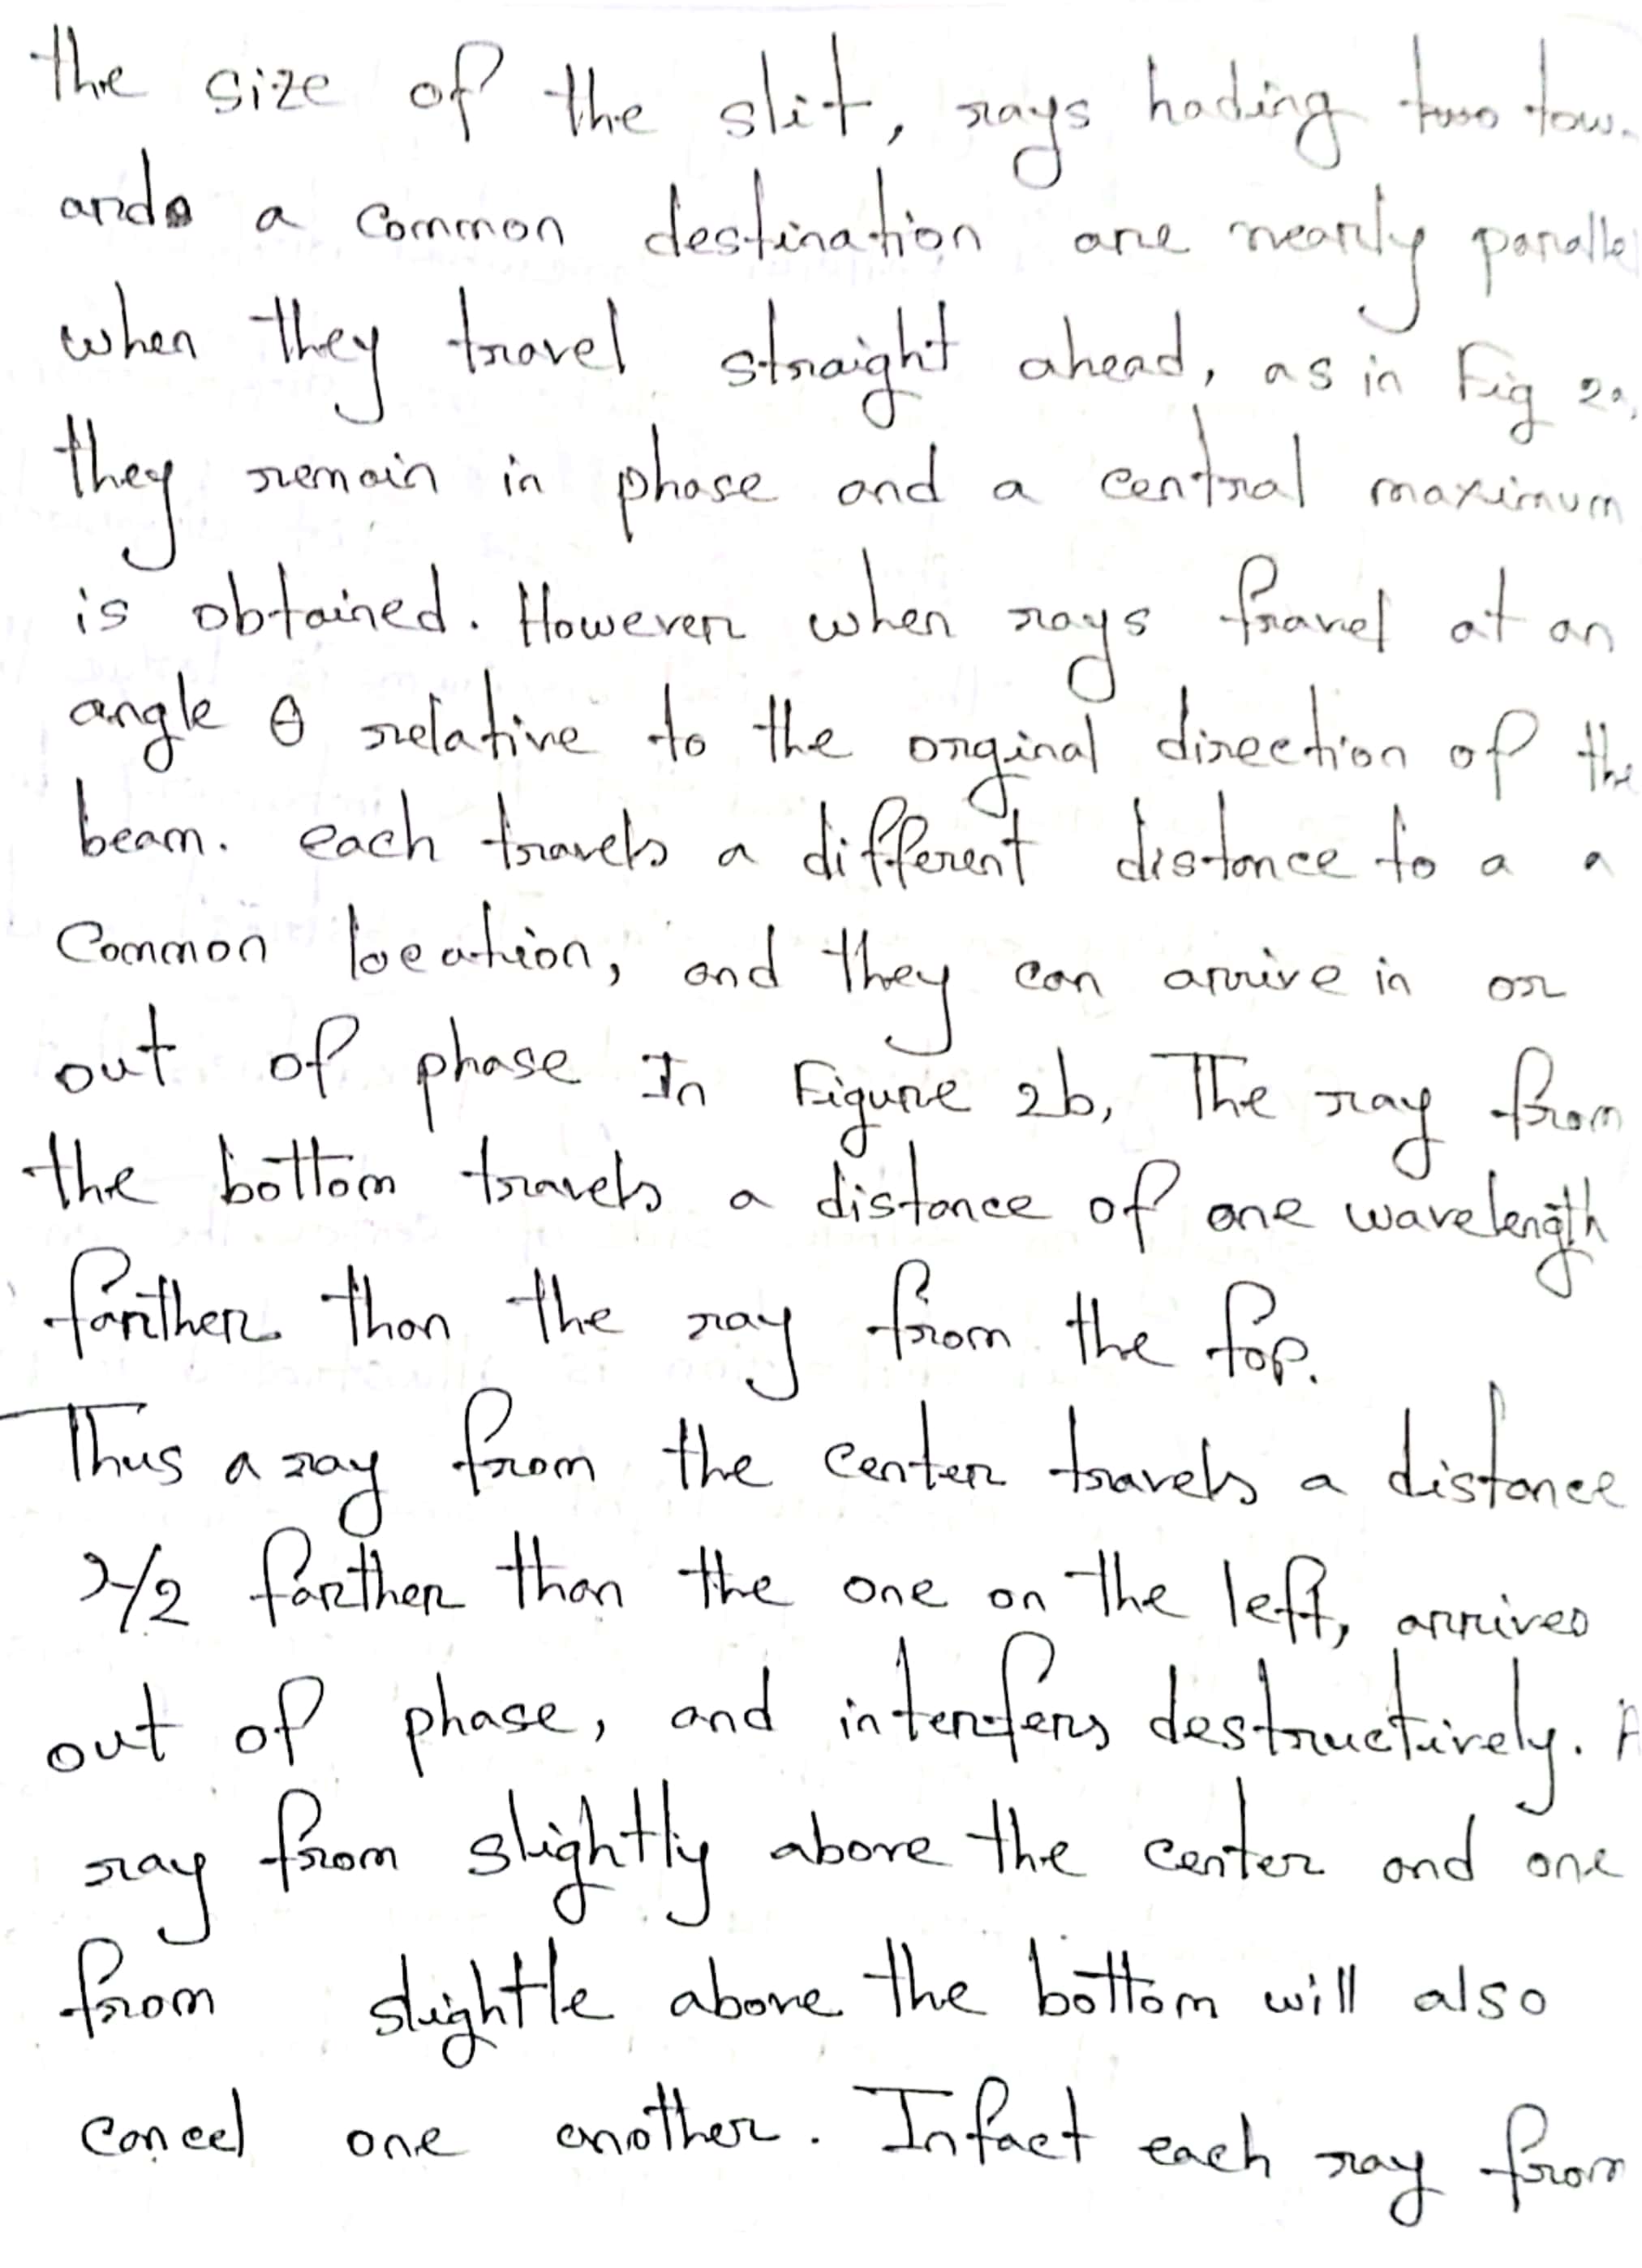 the size of the slit, rays hading two tow-
ards a common destination are nearly paralle
when they travel straight ahead, as in Fig 2a,
they remain in phase and a central maximum
is obtained. However when rays travel at an
angle θ relative to the orginal direction of the
beam. each travels a different distance to a a
Common location, and they can arrive in or
out of phase In Figure 2b, The ray from
the bottom travels a distance of one wavelength
farther than the ray from the top.
Thus a ray from the center travels a distance
λ/2 farther than the one on the left, arrives
out of phase, and interfers destructively. A
ray from slightly above the center and one
from slightle above the bottom will also
cancel one another. Infact each ray from